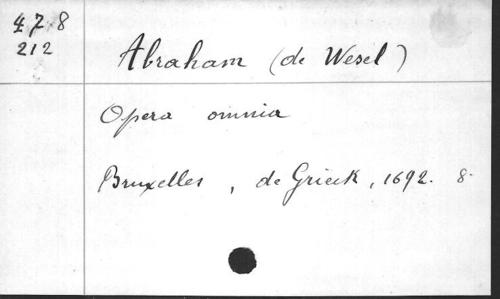 478
212
Abraham (de Wesel)
Opera omnia
Bruxelles, de Grieck, 1692. 8.